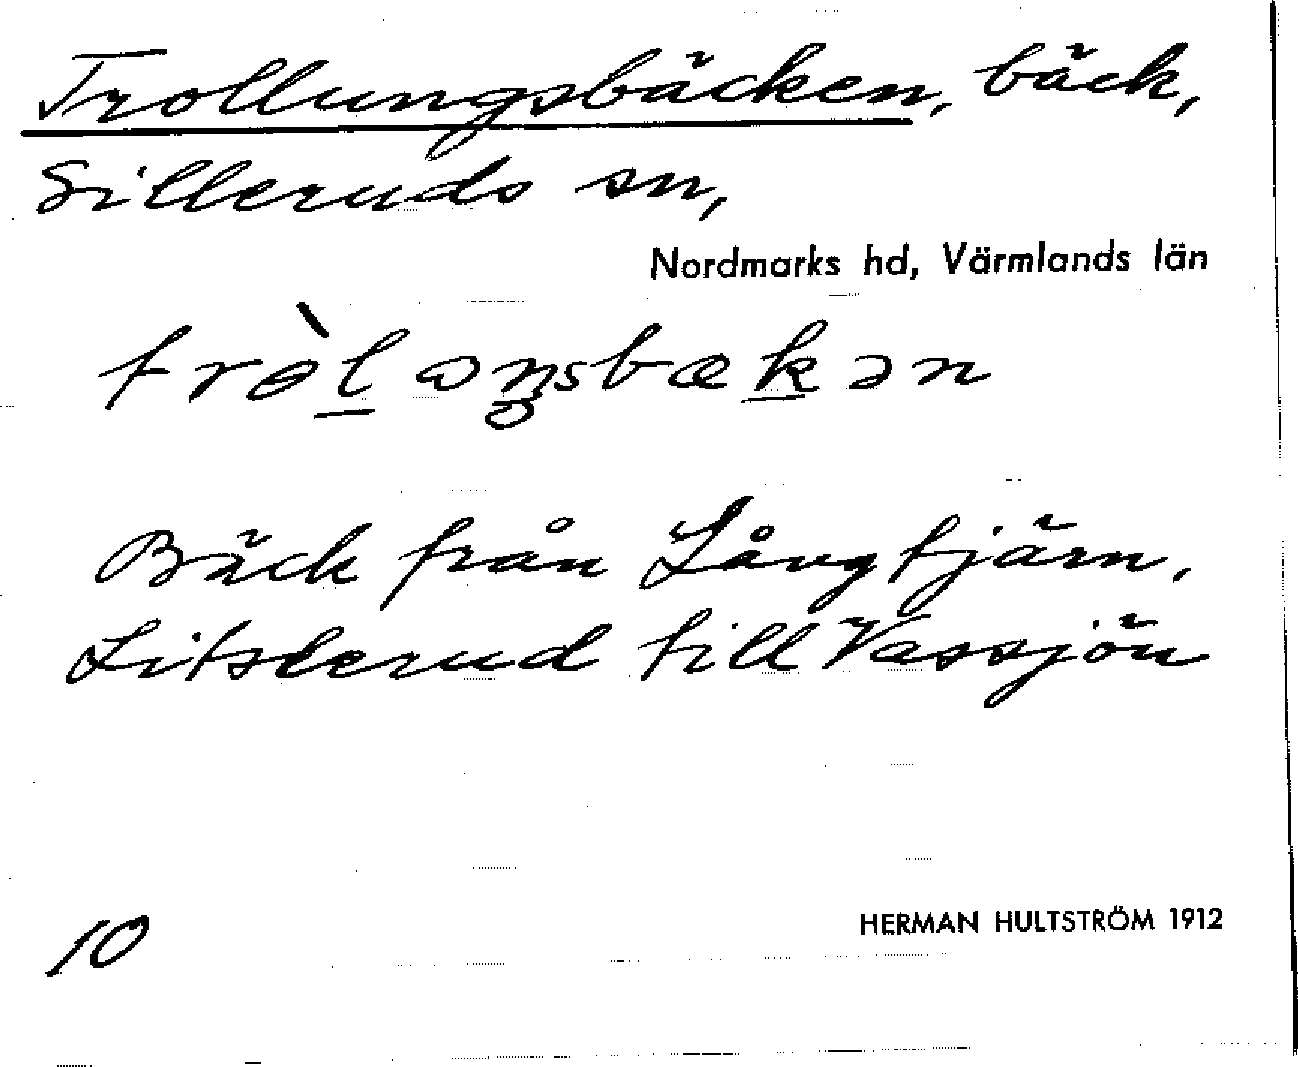 Trollungsbäcken, bäck,
Silleruds sn,
Nordmarks hd, Värmlands län
Bäck från Långtjärn,
Litslerud till Vassjön
10
HERMAN HULTSTRÖM 1912